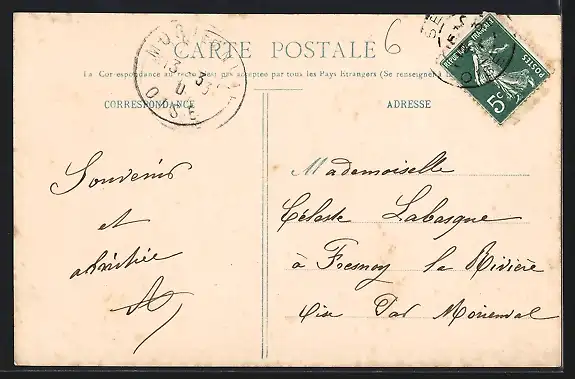 CARTE POSTALE
6
La Correspondance au recto n'est pas acceptée par tous les Pays Etrangers (Se renseigner à
CORRESPONDANCE
ADRESSE
RÉPUBLIQUE FRANÇAISE
POSTES
5c
MORIENVAL
OISE
Souvenir
et
amitiée
Mademoiselle
Céleste Labasque
à Fresnoy la Rivière
Oise Par Morienval